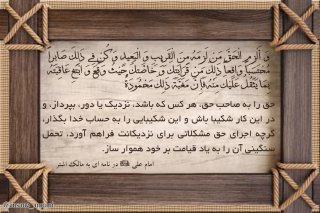 وَ أَلْزِمِ الْحَقَّ مَنْ لَزِمَهُ مِنَ الْقَرِيبِ وَ الْبَعِيدِ وَ كُنْ فِي ذَلِكَ صَابِراً
مُحْتَسِباً وَاقِعاً ذَلِكَ مِنْ قَرَابَتِكَ وَ خَاصَّتِكَ حَيْثُ وَقَعَ وَ ابْتَغِ عَاقِبَتَهُ
بِمَا يَثْقُلُ عَلَيْكَ مِنْهُ فَإِنَّ مَغَبَّةَ ذَلِكَ مَحْمُودَةٌ
حق را به صاحب حق، هر کس که باشد، نزدیک یا دور، بپرداز، و
در این کار شکیبا باش و این شکیبایی را به حساب خدا بگذار،
گرچه اجرای حق مشکلاتی برای نزدیکانت فراهم آورد، تحمل
سنگینی آن را به یاد قیامت بر خود هموار ساز.
امام علی در نامه ای به مالک اشتر